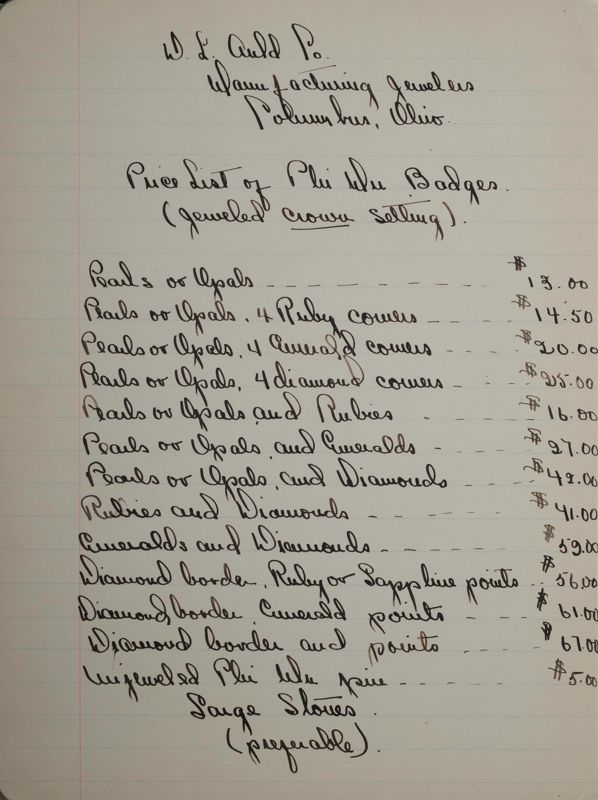 D. L. Auld Co.
Manufacturing Jewelers
Columbus, Ohio.
Price List of Phi Mu Badges.
(Jeweled crown setting).
Pearls or Opals $13.00
Pearls or Opals, 4 Ruby corners $14.50
Pearls or Opals, 4 Emerald corners $20.00
Pearls or Opals, 4 diamond corners $25.00
Pearls or Opals and Rubies $16.00
Pearls or Opals and Emeralds $27.00
Pearls or Opals and Diamonds
Rubies and Diamonds $41.00
Emeralds and Diamonds $59.00
Diamond border, Ruby or Sapphire points $56.00
Diamond border, Emerald points $61.00
Diamond border and points $67.00
Unjeweled Phi Mu pin $5.00
Large Stones.
(preferable).